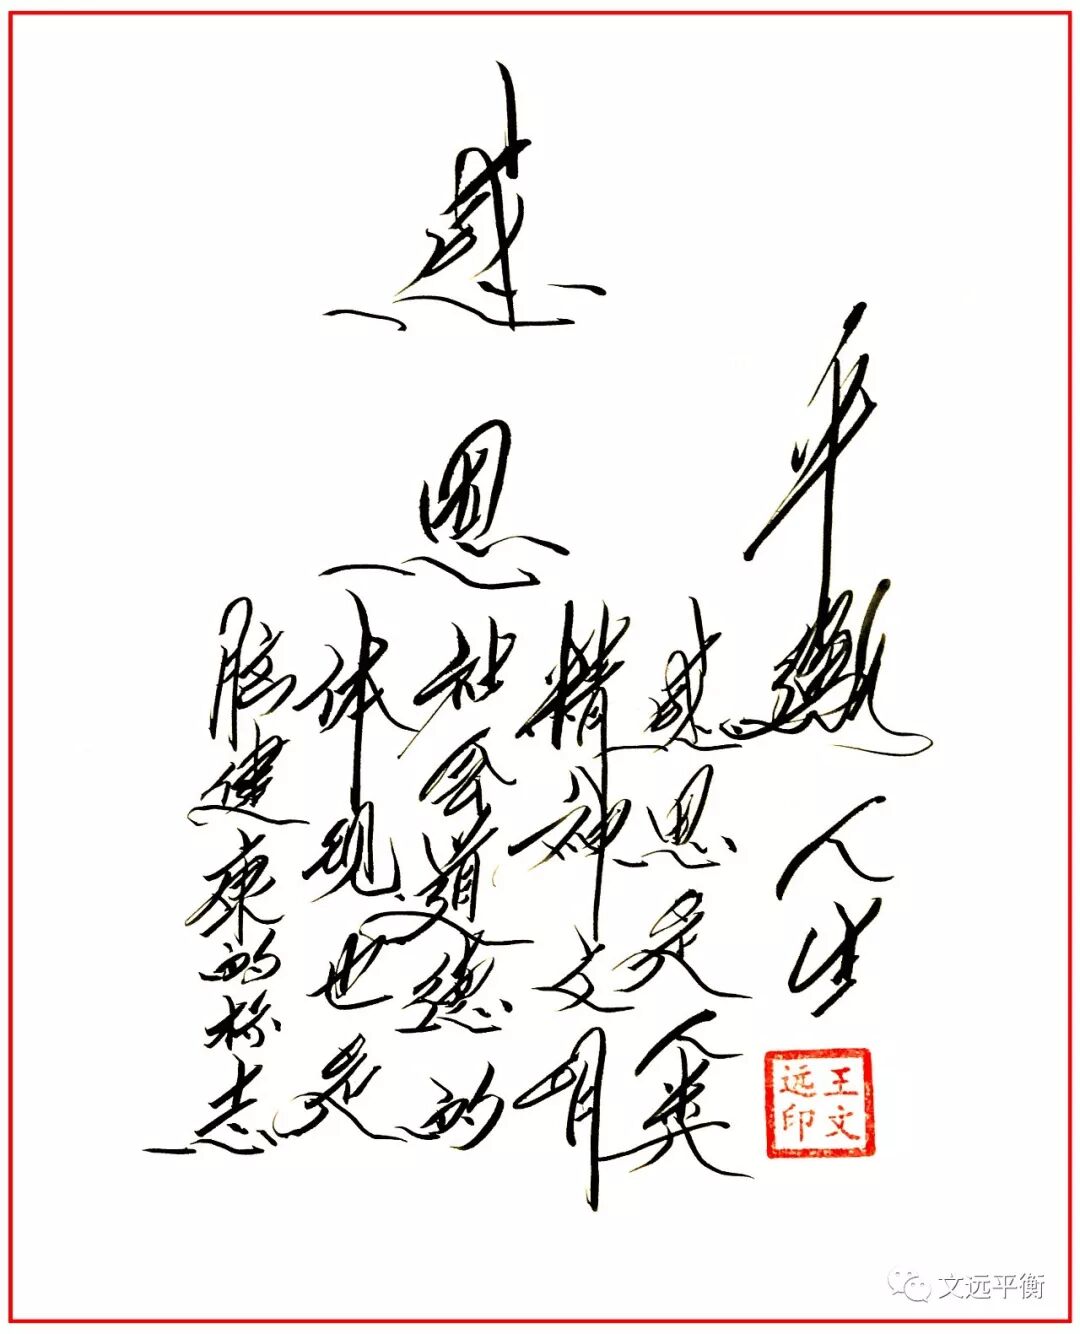 感恩
平衡人生
感恩是人类
精神文明
社会道德的
体现也是
脑健康的标志
王文远印
文远平衡